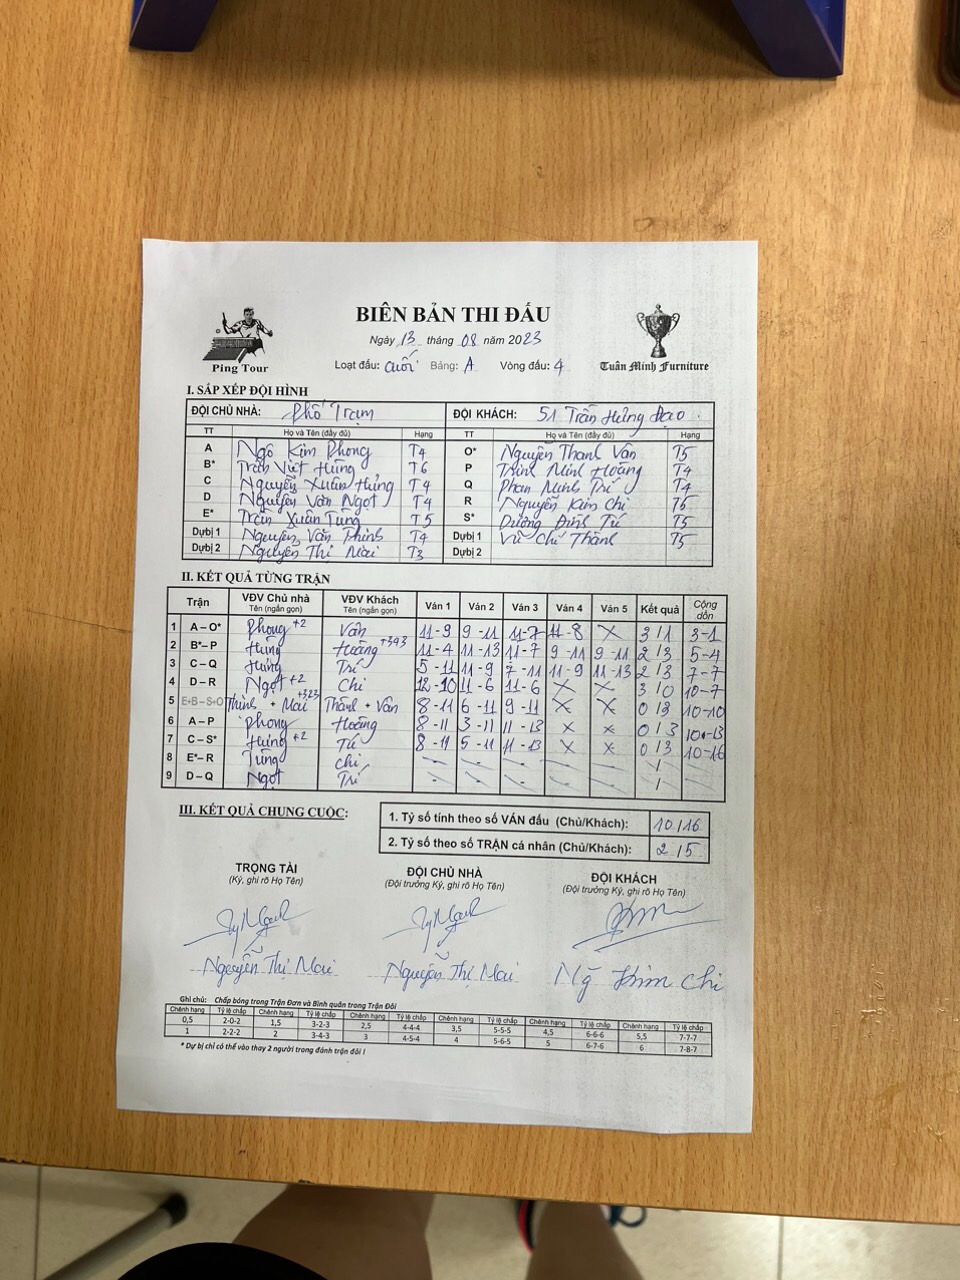 BIÊN BẢN THI ĐẤU
Ngày 13 tháng 08 năm 2023
Ping Tour
Loạt đấu: Cuối Bảng: A Vòng đấu: 4
Tuấn Minh Furniture
I. SẮP XẾP ĐỘI HÌNH
ĐỘI CHỦ NHÀ: Phố Trạm ĐỘI KHÁCH: 51 Trần Hưng Đạo
TT Họ và Tên (đầy đủ) Hạng TT Họ và Tên (đầy đủ) Hạng
A Ngô Kim Phong T4 O* Nguyễn Thanh Vân T5
B* Trần Việt Hùng T6 P Trịnh Minh Hoàng T4
C Nguyễn Xuân Hưng T4 Q Phan Minh Trí T4
D Nguyễn Văn Ngọt T4 R Nguyễn Kim Chi T5
E* Trần Xuân Tùng T5 S* Dương Đình Tú T5
Dự bị 1 Nguyễn Văn Thinh T4 Dự bị 1 Vũ Chí Thành T5
Dự bị 2 Nguyễn Thị Mai T3 Dự bị 2
II. KẾT QUẢ TỪNG TRẬN
Trận VĐV Chủ nhà Tên (ngắn gọn) VĐV Khách Tên (ngắn gọn) Ván 1 Ván 2 Ván 3 Ván 4 Ván 5 Kết quả Cộng dồn
1 A – O* Phong +2 Vân 11-9 9-11 11-7 11-8 X 3/1 3-1
2 B* – P Hùng Hoàng +343 11-4 11-13 11-7 9-11 9-11 2/3 5-4
3 C – Q Hưng Trí 5-11 11-9 7-11 11-9 11-13 2/3 7-7
4 D – R Ngọt +2 Chi 12-10 11-6 11-6 X X 3/0 10-7
5 E+B – S+O Thinh + Mai +323 Thành + Vân 8-11 6-11 9-11 X X 0/3 10-10
6 A – P Phong Hoàng 8-11 3-11 11-13 x x 0/3 10-13
7 C – S* Hưng +2 Tú 8-11 5-11 11-13 x x 0/3 10-16
8 E* – R Tùng Chi
9 D – Q Ngọt Trí
III. KẾT QUẢ CHUNG CUỘC:
1. Tỷ số tính theo số VÁN đấu (Chủ/Khách): 10/16
2. Tỷ số theo số TRẬN cá nhân (Chủ/Khách): 2/5
TRỌNG TÀI ĐỘI CHỦ NHÀ ĐỘI KHÁCH
(Ký, ghi rõ Họ Tên) (Đội trưởng Ký, ghi rõ Họ Tên) (Đội trưởng Ký, ghi rõ Họ Tên)
Nguyễn Thị Mai Nguyễn Thị Mai Mỹ Kim Chi
Ghi chú: Chấp bóng trong Trận Đơn và Bình quân trong Trận Đôi
Chênh hạng Tỷ lệ chấp Chênh hạng Tỷ lệ chấp Chênh hạng Tỷ lệ chấp Chênh hạng Tỷ lệ chấp Chênh hạng Tỷ lệ chấp Chênh hạng Tỷ lệ chấp
0,5 2-0-2 1,5 3-2-3 2,5 4-4-4 3,5 5-5-5 4,5 6-6-6 5,5 7-7-7
1 2-2-2 2 3-4-3 3 4-5-4 4 5-6-5 5 6-7-6 6 7-8-7
* Dự bị chỉ có thể vào thay 2 người trong đánh trận đôi !